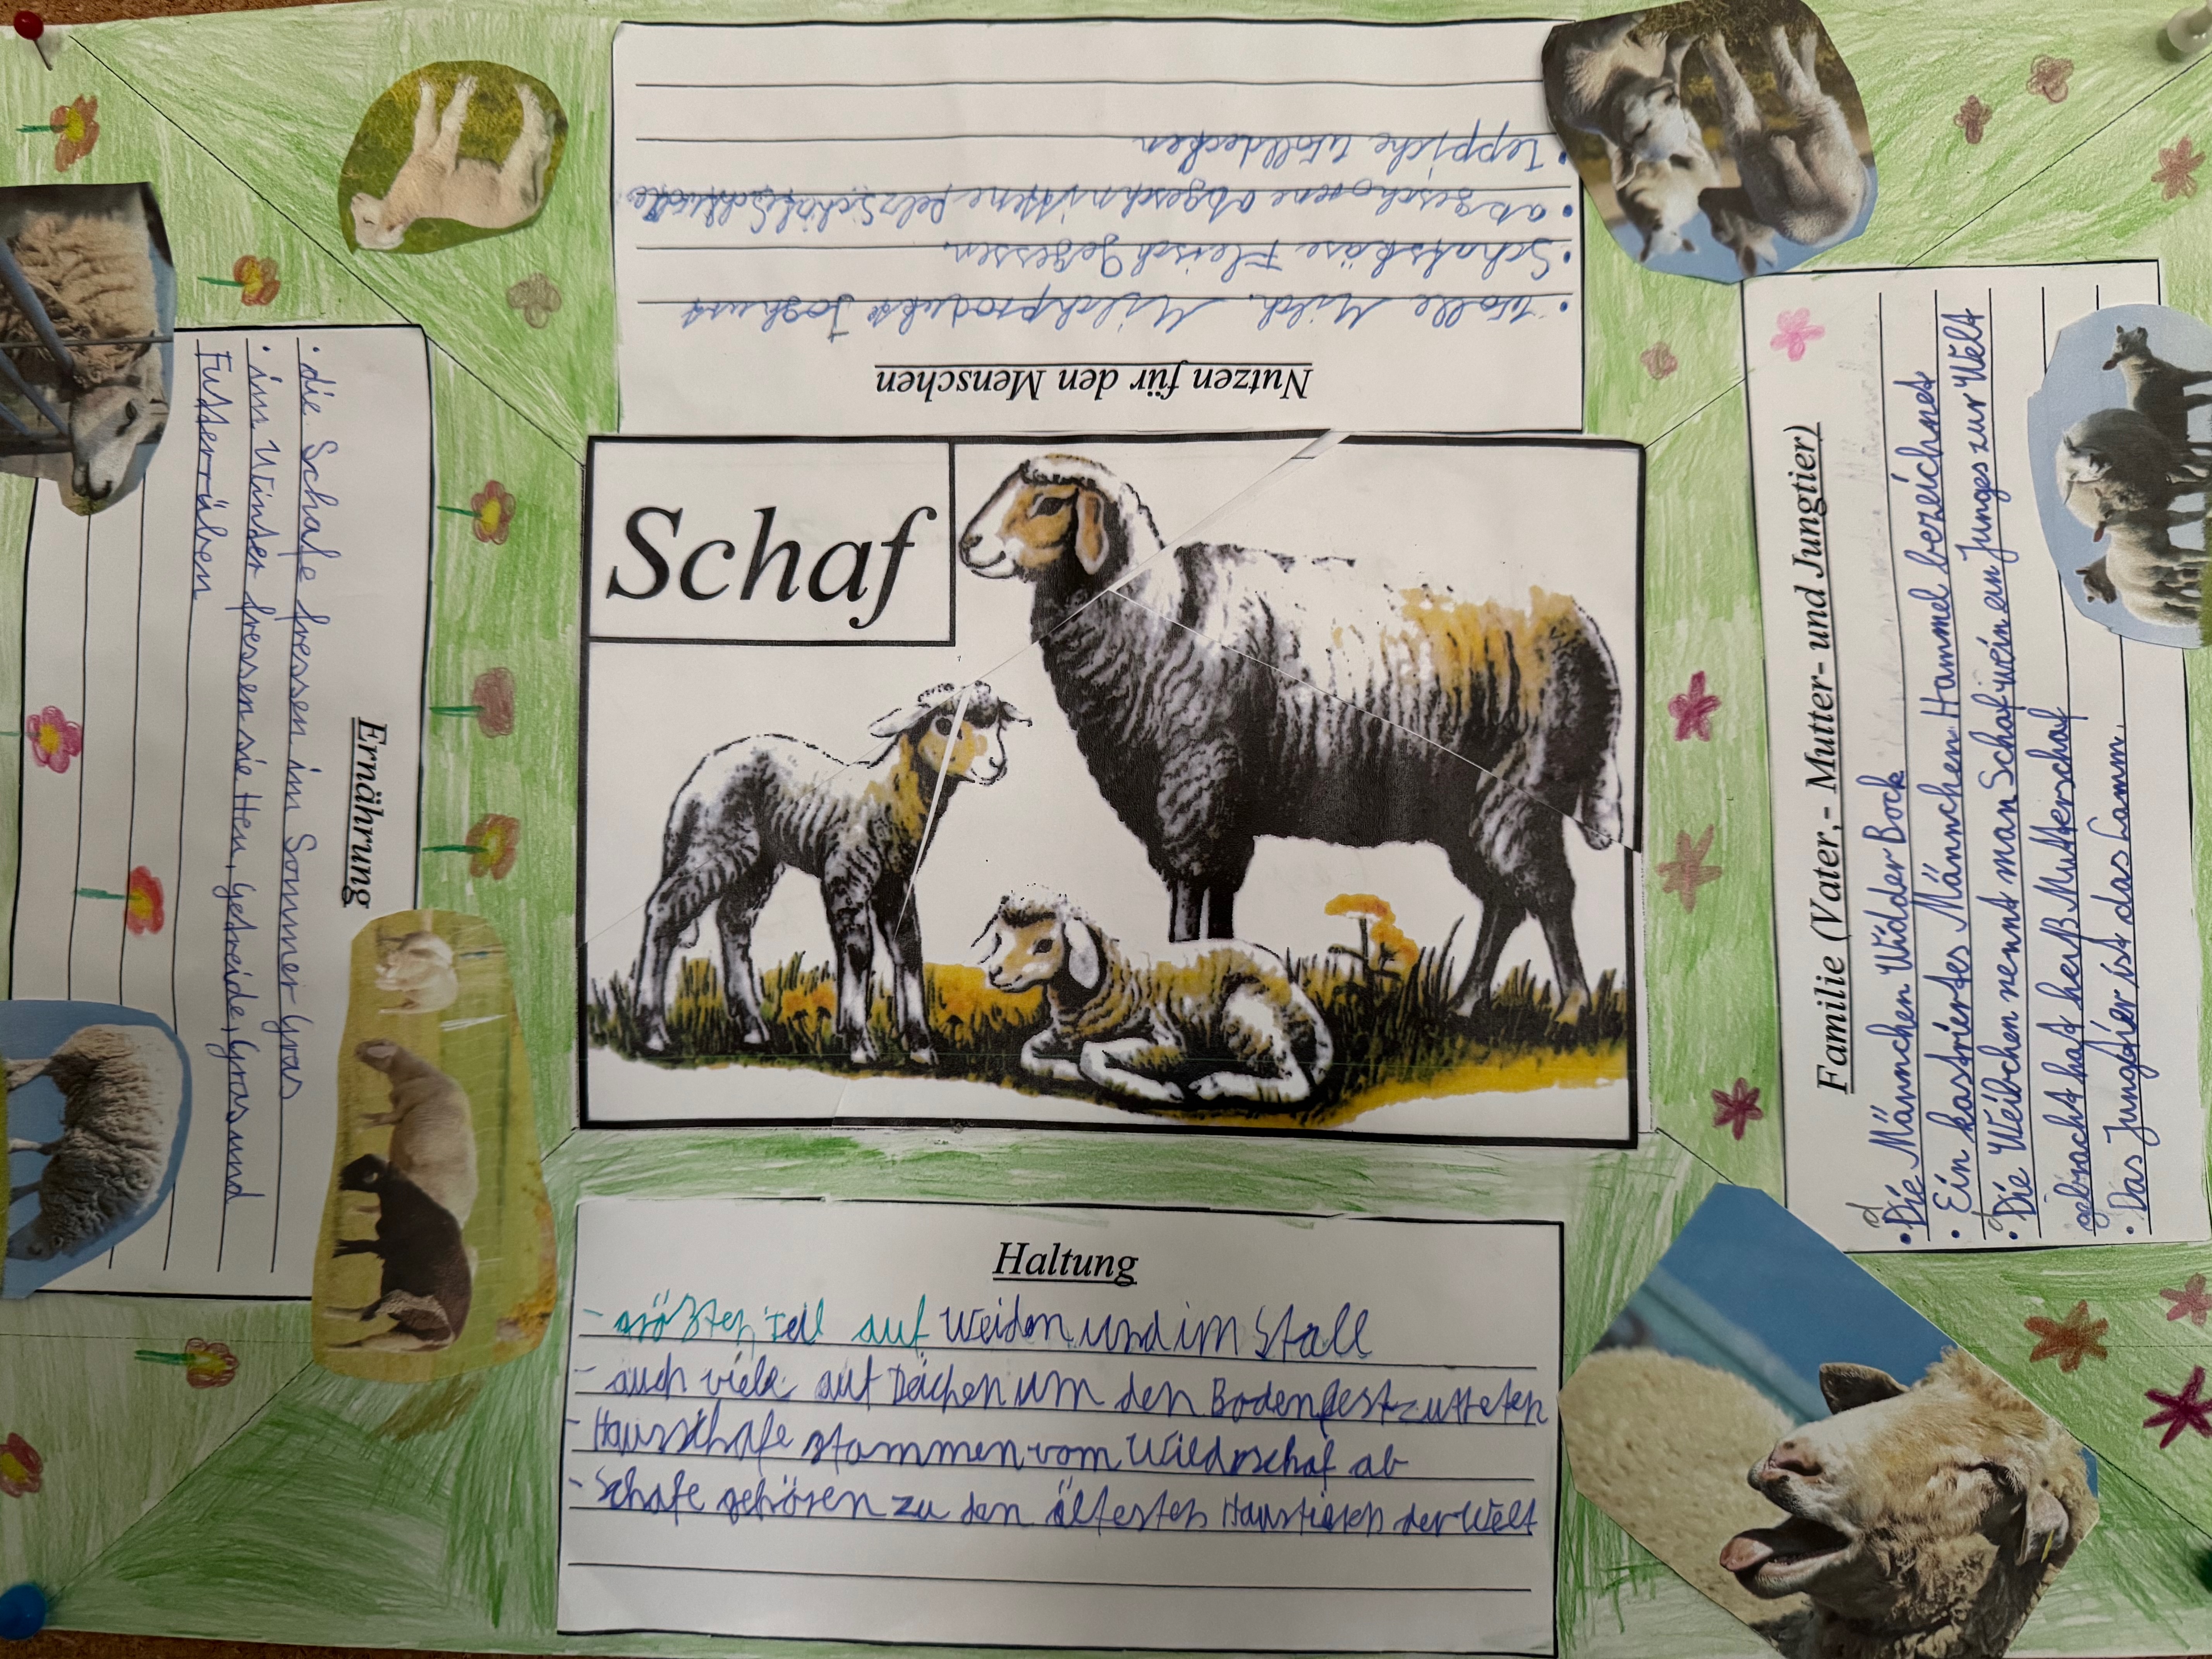 Schaf
Nutzen für den Menschen
• Wolle Milch. Milchprodukte Joghurt
• Schafskäse Fleisch gegessen.
• abgeschorene abgeschnittene Pelz Schafe
• Teppiche Wolldecken
Familie (Vater,- Mutter- und Jungtier)
• Die Männchen Widder Bock
• Ein kastriertes Männchen Hammel bezeichnet
• Die Weibchen nennt man Schaf wein ein Junges zur Welt
gebracht hat heß Mutterschaf
• Das Jungtier ist das Lamm.
Haltung
- größten Teil auf Weiden und im Stall
- auch viele auf Deichen um den Boden festzutreten
- Hausschafe stammen vom Wildschaf ab
- Schafe gehören zu den ältesten Haustieren der Welt
Ernährung
• die Schafe fressen im Sommer Gras
• im Winter fressen sie Heu, Getreide, Gras und
Futterrüben